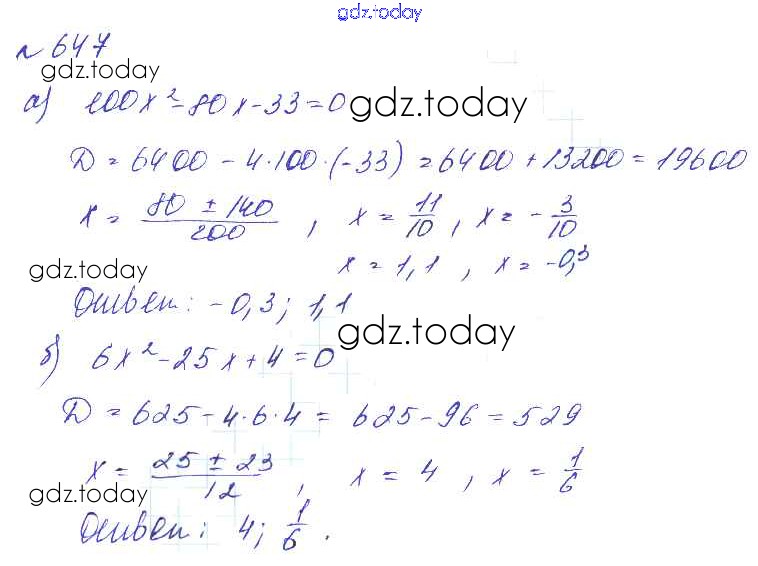 gdz.today
№ 647
gdz.today
а) 100x² - 80x - 33 = 0 gdz.today
D = 6400 - 4·100·(-33) = 6400 + 13200 = 19600
x = (80 ± 140)/200, x = 11/10, x = -3/10
gdz.today x = 1,1, x = -0,3
Ответ: -0,3; 1,1
gdz.today
б) 6x² - 25x + 4 = 0
D = 625 - 4·6·4 = 625 - 96 = 529
x = (25 ± 23)/12, x = 4, x = 1/6
gdz.today gdz.today
Ответ: 4; 1/6.